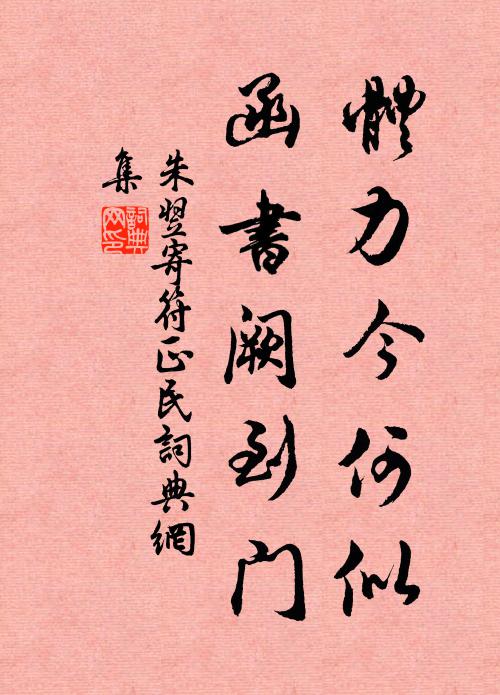 體力今何似
函書闕到門
朱翌寄符正民詞典網
集
詞典
网印